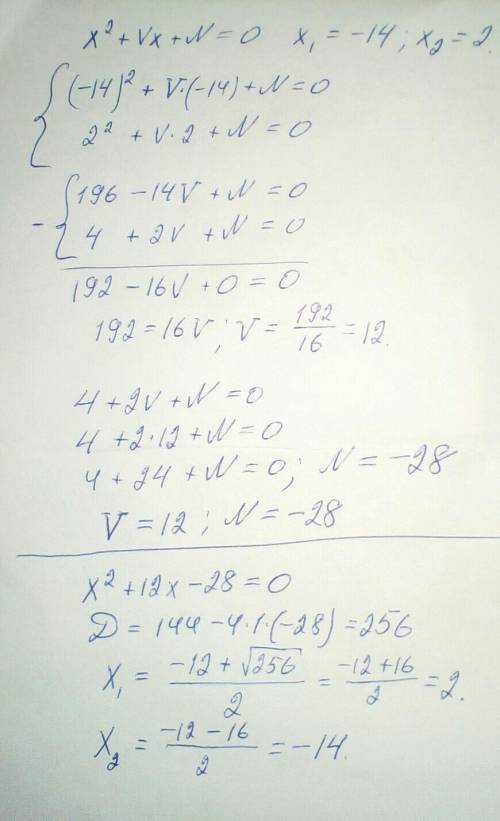 x² + Vx + N = 0   x₁ = -14 ; x₂ = 2.
{ (-14)² + V·(-14) + N = 0
2² + V·2 + N = 0
- { 196 - 14V + N = 0
4 + 2V + N = 0
192 - 16V + 0 = 0
192 = 16V ; V = 192/16 = 12.
4 + 2V + N = 0
4 + 2·12 + N = 0
4 + 24 + N = 0 ; N = -28
V = 12 ; N = -28
x² + 12x - 28 = 0
D = 144 - 4·1·(-28) = 256
X₁ = (-12 + √256)/2 = (-12 + 16)/2 = 2.
X₂ = (-12 - 16)/2 = -14.